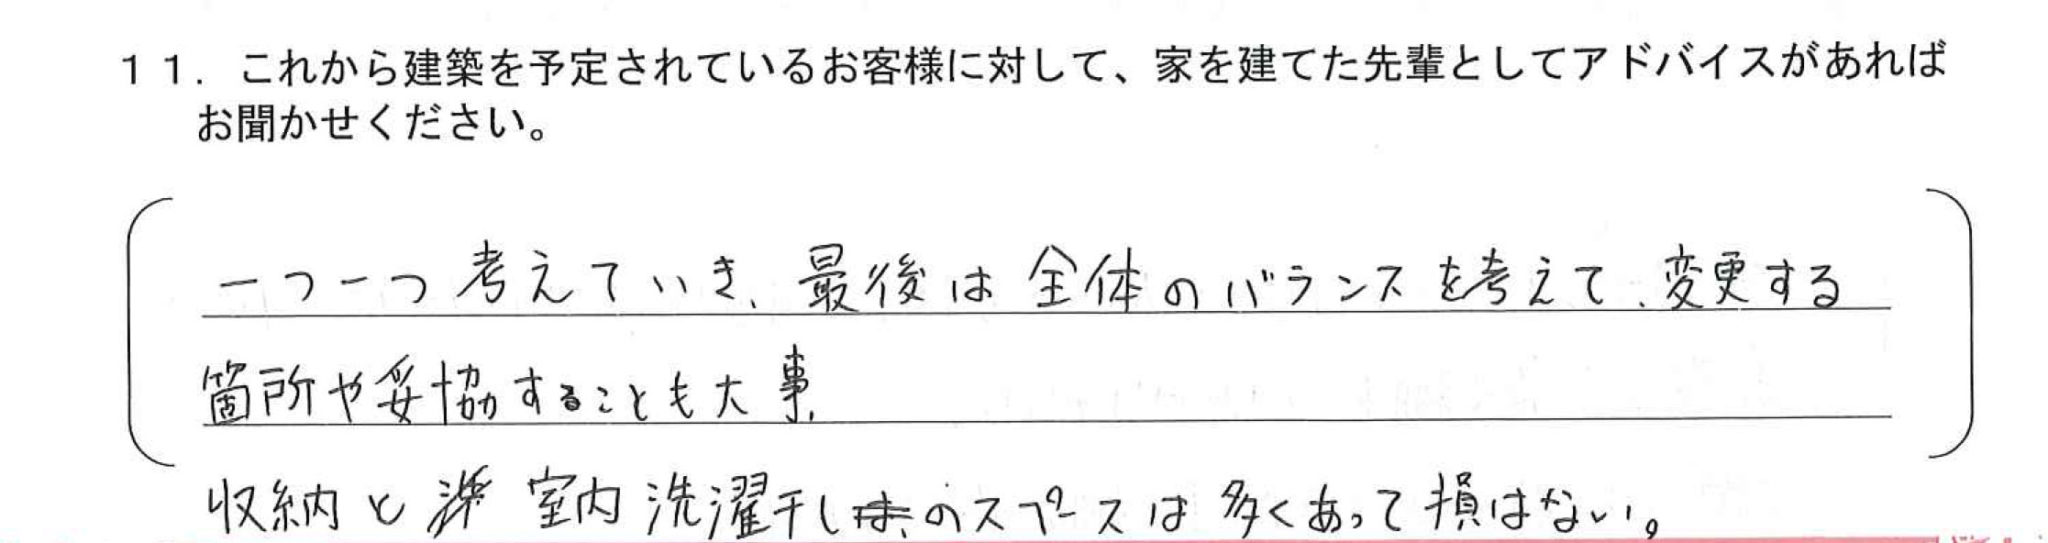 １１．これから建築を予定されているお客様に対して、家を建てた先輩としてアドバイスがあれば
お聞かせください。
一つ一つ考えていき、最後は全体のバランスを考えて、変更する
箇所や妥協することも大事。
収納と室内洗濯干しのスペースは多くあって損はない。